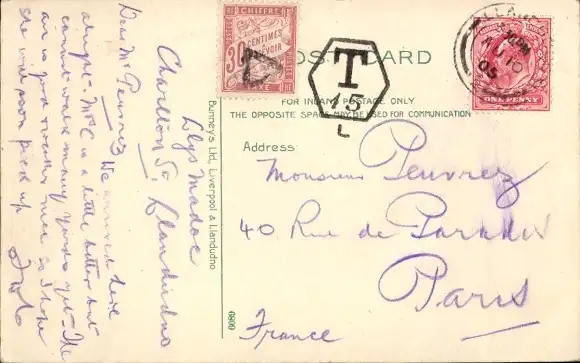 CHIFFRE
30
CENTIMES
À PERCEVOIR
TAXE
POST CARD
T
15
L
LLANDUDNO
10
05
ONE PENNY
FOR INLAND POSTAGE ONLY
THE OPPOSITE SPACE MAY BE USED FOR COMMUNICATION
Address
Monsieur Peuvrez
40 Rue de Paradis
Paris
France
Bunney's Ltd, Liverpool & Llandudno
0809
Llys Madoc
Charlton St, Llandudno
Dear Mr Peuvrez We arrived here
alright - Mrs C is a little better but
cannot walk many yards yet - We
are to put weeks here so I hope
she will soon pick up